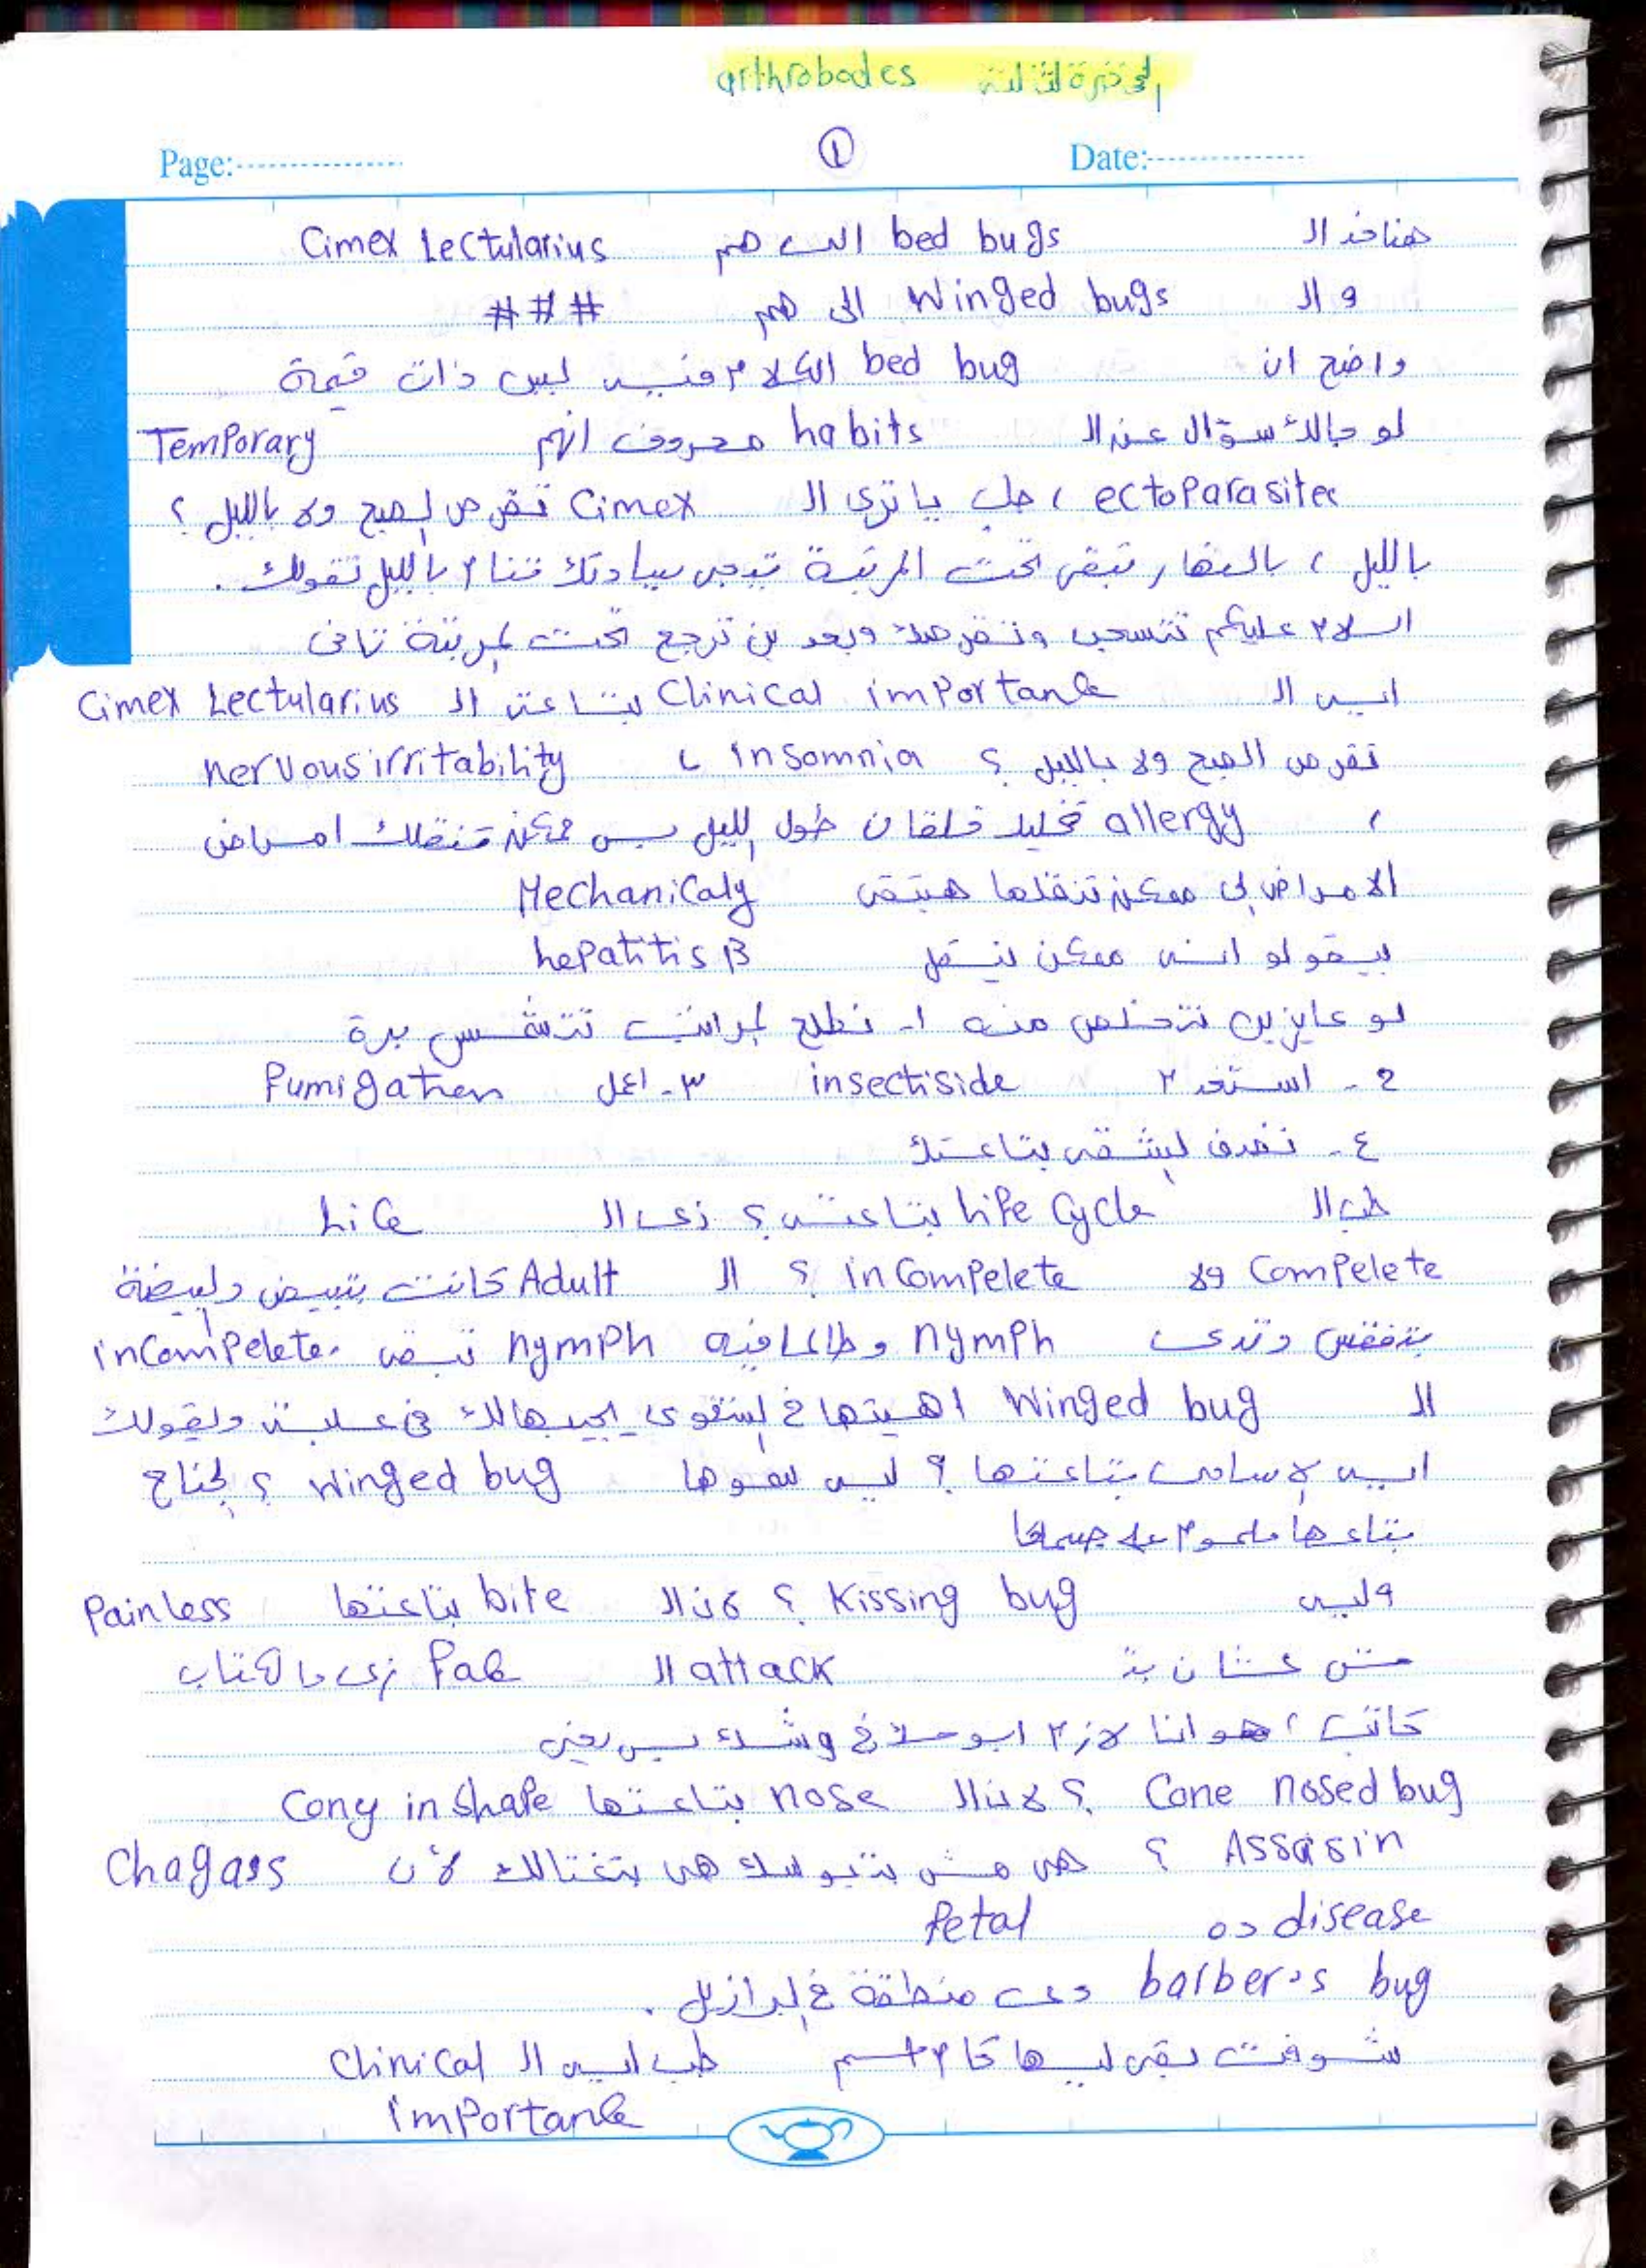 المحاضرة الثالثة arthrobodes
Page: ① Date:
هناخد ال bed bugs اللى هم Cimex Lectularius
و ال Winged bugs الى هم ###
واضح ان bed bug الكلام فيه ليس ذات قيمة
لو جالك سؤال عن ال habits معروف انهم Temporary
ectoparasites ، طب يا ترى ال Cimex تقرص الصبح ولا بالليل ؟
بالليل ، بالنهار تبقى تحت المرتبة تيجى سيادتك تنام بالليل تقولك .
السلام عليكم تتسحب وتقرصك وبعدين ترجع تحت المرتبة تانى
ايه ال Clinical importance بتاعت ال Cimex Lectularius
تقرص الصبح ولا بالليل ؟ insomnia ، nervous irritability
، allergy تخليك قلقان طول الليل بس ممكن تنقلك امراض
الامراض الى ممكن تنقلها هتبقى Mechanicaly
بيقولو انه ممكن ينقل hepatitis B
لو عايزين نتخلص منه ١- نطلع المراتب تتشمس برة
2 - استخدم insectiside ٣- اعمل Fumigation
٤- الشقه بتاعتك
طب ال Life Cycle بتاعته ؟ زى ال Lice
Compelete ولا inCompelete ؟ ال Adult كانت بتبيض والبيضة
بتفقس وتدى nymph وطالما فيه nymph تبقى inCompelete.
ال Winged bug اهميتها فى الشفوى يجيبهالك فى علبة ويقولك
ايه الاسامى بتاعتها ؟ ليه سموها Winged bug ؟ الجناح
بتاعها ملموم على جسمها
وليه Kissing bug ؟ لان ال bite بتاعتها Painless
مش عشان بتـ attack ال Face زى ما الكتاب
كاتب ، هو انا لازم ابوسك فى وشك بس يعنى
Cone nosed bug ؟ لان ال nose بتاعتها Cony in shape
Assasin ؟ هى مش بتبوسك هى بتغتالك لأن Chagass
disease ده Fetal
barber's bug دى منطقة فى البرازيل .
شوفت بقى ليها كام اسم طب ايه ال Clinical
importance